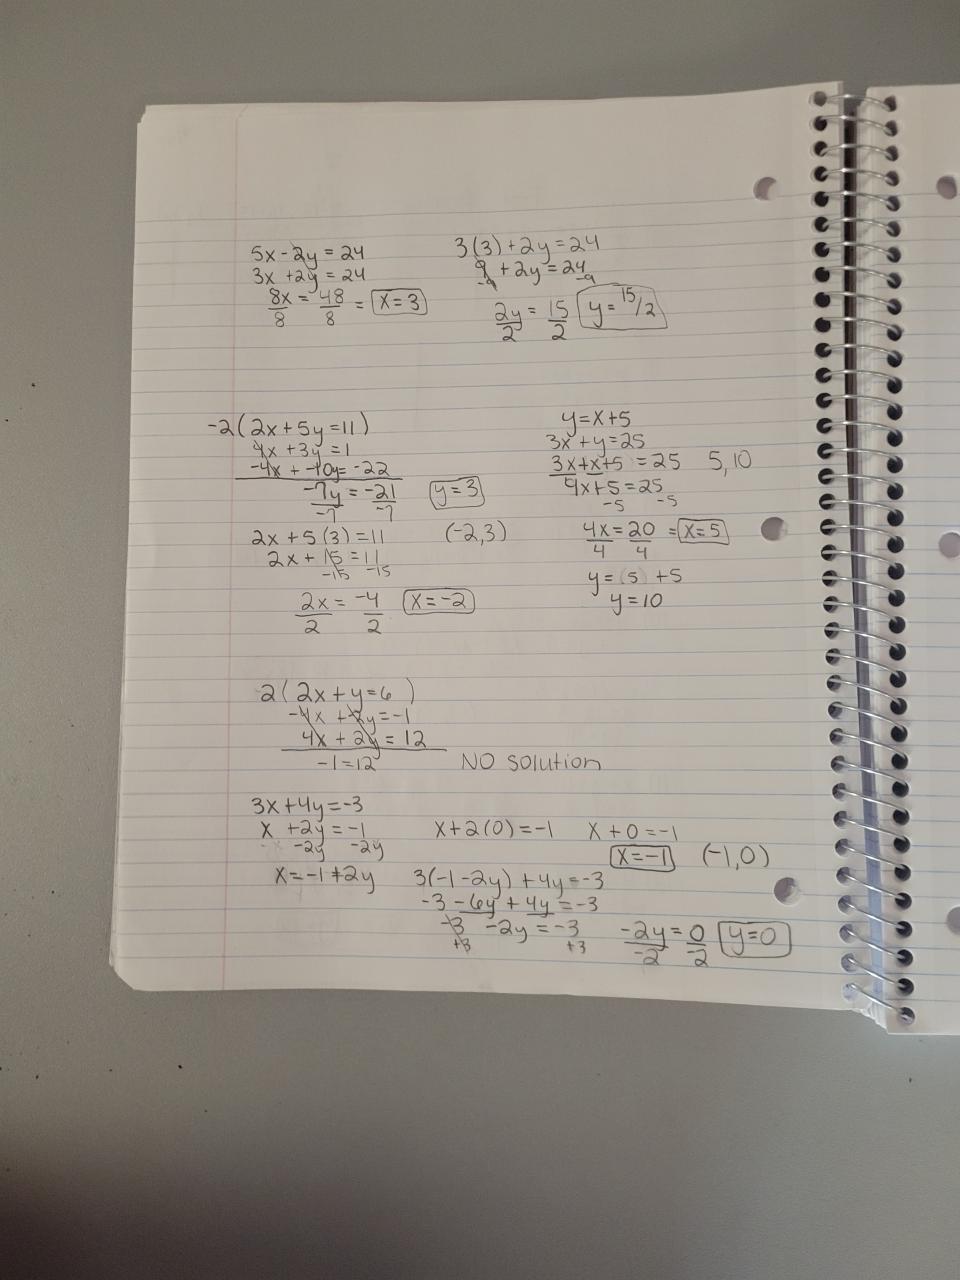 5x - 2y = 24
3x + 2y = 24
8x/8 = 48/8 = x = 3
3(3) + 2y = 24
9 + 2y = 24
-9 -9
2y/2 = 15/2 y = 15/2
-2(2x + 5y = 11)
4x + 3y = 1
-4x + -10y = -22
-7y/-7 = -21/-7 y = 3
2x + 5(3) = 11 (-2,3)
2x + 15 = 11
-15 -15
2x/2 = -4/2 x = -2
y = x + 5
3x + y = 25
3x + x + 5 = 25 5,10
4x + 5 = 25
-5 -5
4x/4 = 20/4 = x = 5
y = (5) + 5
y = 10
2(2x + y = 6)
-4x + -2y = -1
4x + 2y = 12
-1 = 12 NO Solution
3x + 4y = -3
x + 2y = -1
-2y -2y
x = -1 + 2y
x + 2(0) = -1 x + 0 = -1
x = -1 (-1,0)
3(-1 - 2y) + 4y = -3
-3 - 6y + 4y = -3
-3 - 2y = -3
+3 +3
-2y/-2 = 0/-2 y = 0